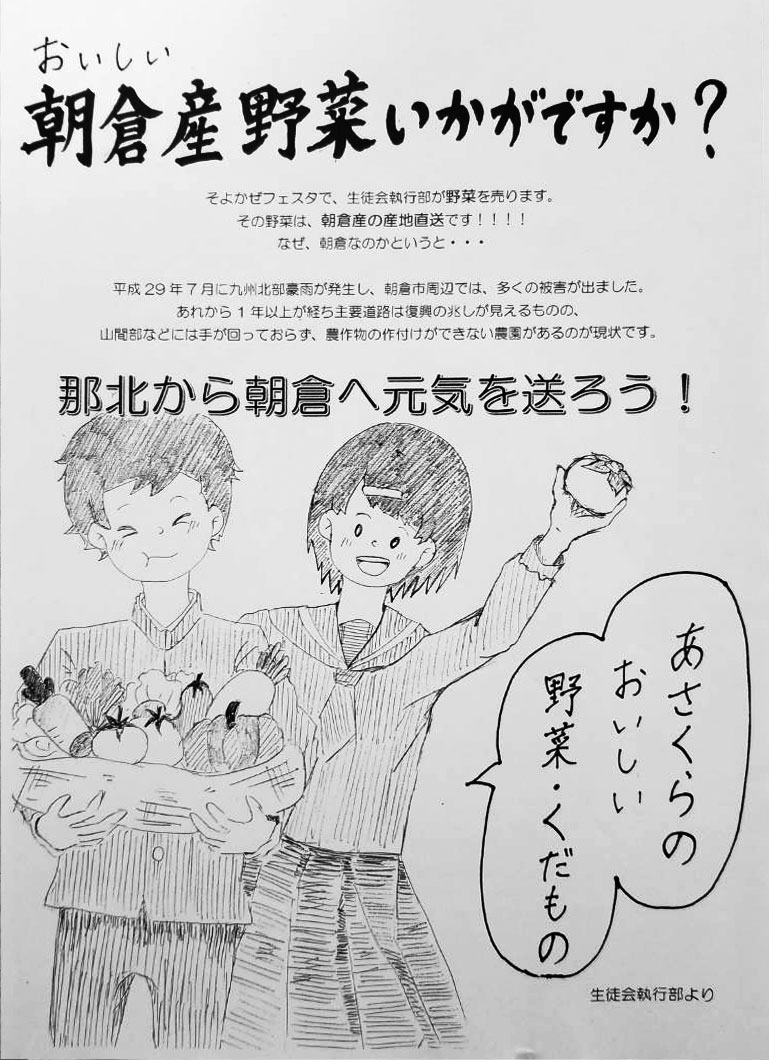 おいしい
朝倉産野菜いかがですか？
そよかぜフェスタで、生徒会執行部が野菜を売ります。
その野菜は、朝倉産の産地直送です！！！！
なぜ、朝倉なのかというと・・・
平成29年7月に九州北部豪雨が発生し、朝倉市周辺では、多くの被害が出ました。
あれから1年以上が経ち主要道路は復興の兆しが見えるものの、
山間部などには手が回っておらず、農作物の作付けができない農園があるのが現状です。
那北から朝倉へ元気を送ろう！
あさくらの
おいしい
野菜・くだもの
生徒会執行部より